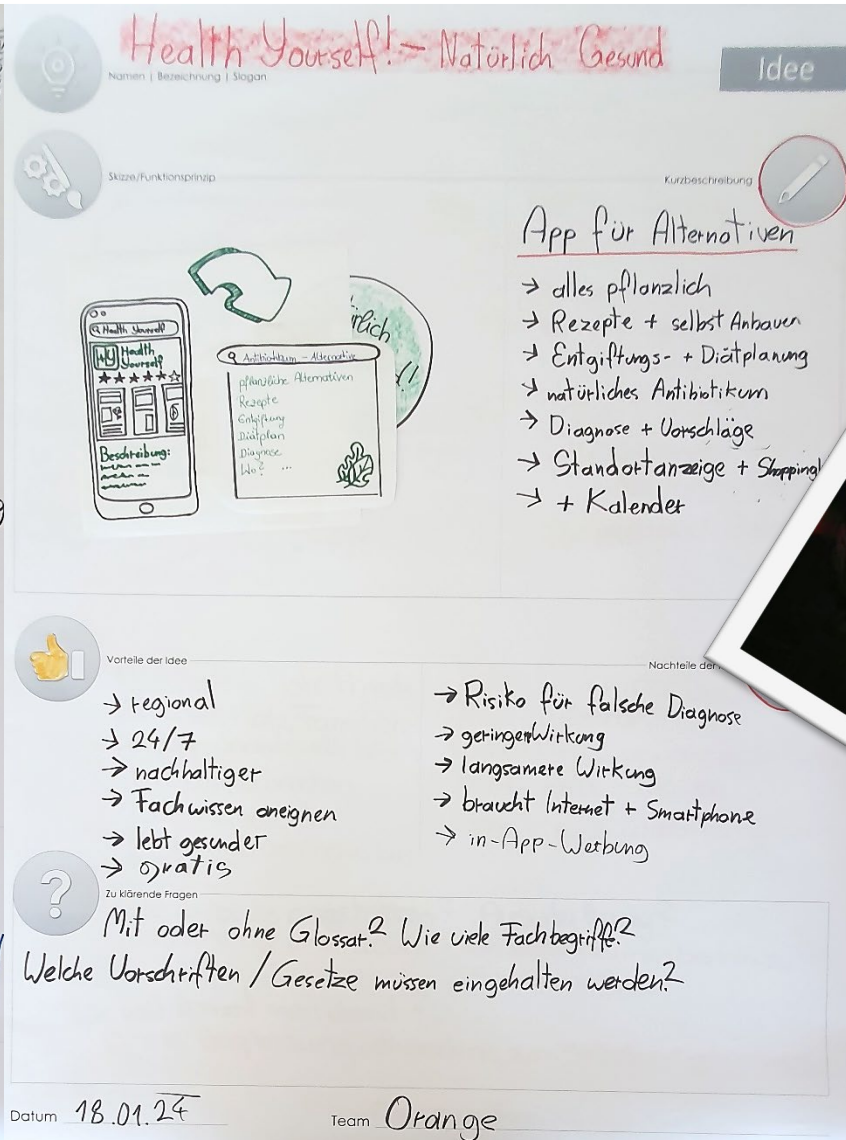 Health Yourself! - Natürlich Gesund
Namen | Bezeichnung | Slogan
Idee
Skizze/Funktionsprinzip
Health Yourself
HY Health
Yourself
Beschreibung:
rlich
!
Antibiotikum - Alternative
pflanzliche Alternativen
Rezepte
Entgiftung
Diätplan
Diagnose
Wo? ...
Kurzbeschreibung
App für Alternativen
→ alles pflanzlich
→ Rezepte + selbst Anbauen
→ Entgiftungs- + Diätplanung
→ natürliches Antibiotikum
→ Diagnose + Vorschläge
→ Standortanzeige + Shopping
→ + Kalender
Vorteile der Idee
→ regional
→ 24/7
→ nachhaltiger
→ Fachwissen aneignen
→ lebt gesunder
→ gratis
Nachteile der
→ Risiko für falsche Diagnose
→ geringere Wirkung
→ langsamere Wirkung
→ braucht Internet + Smartphone
→ in-App-Werbung
?
Zu klärende Fragen
Mit oder ohne Glossar? Wie viele Fachbegriffe?
Welche Vorschriften / Gesetze müssen eingehalten werden?
Datum 18.01.24
Team Orange